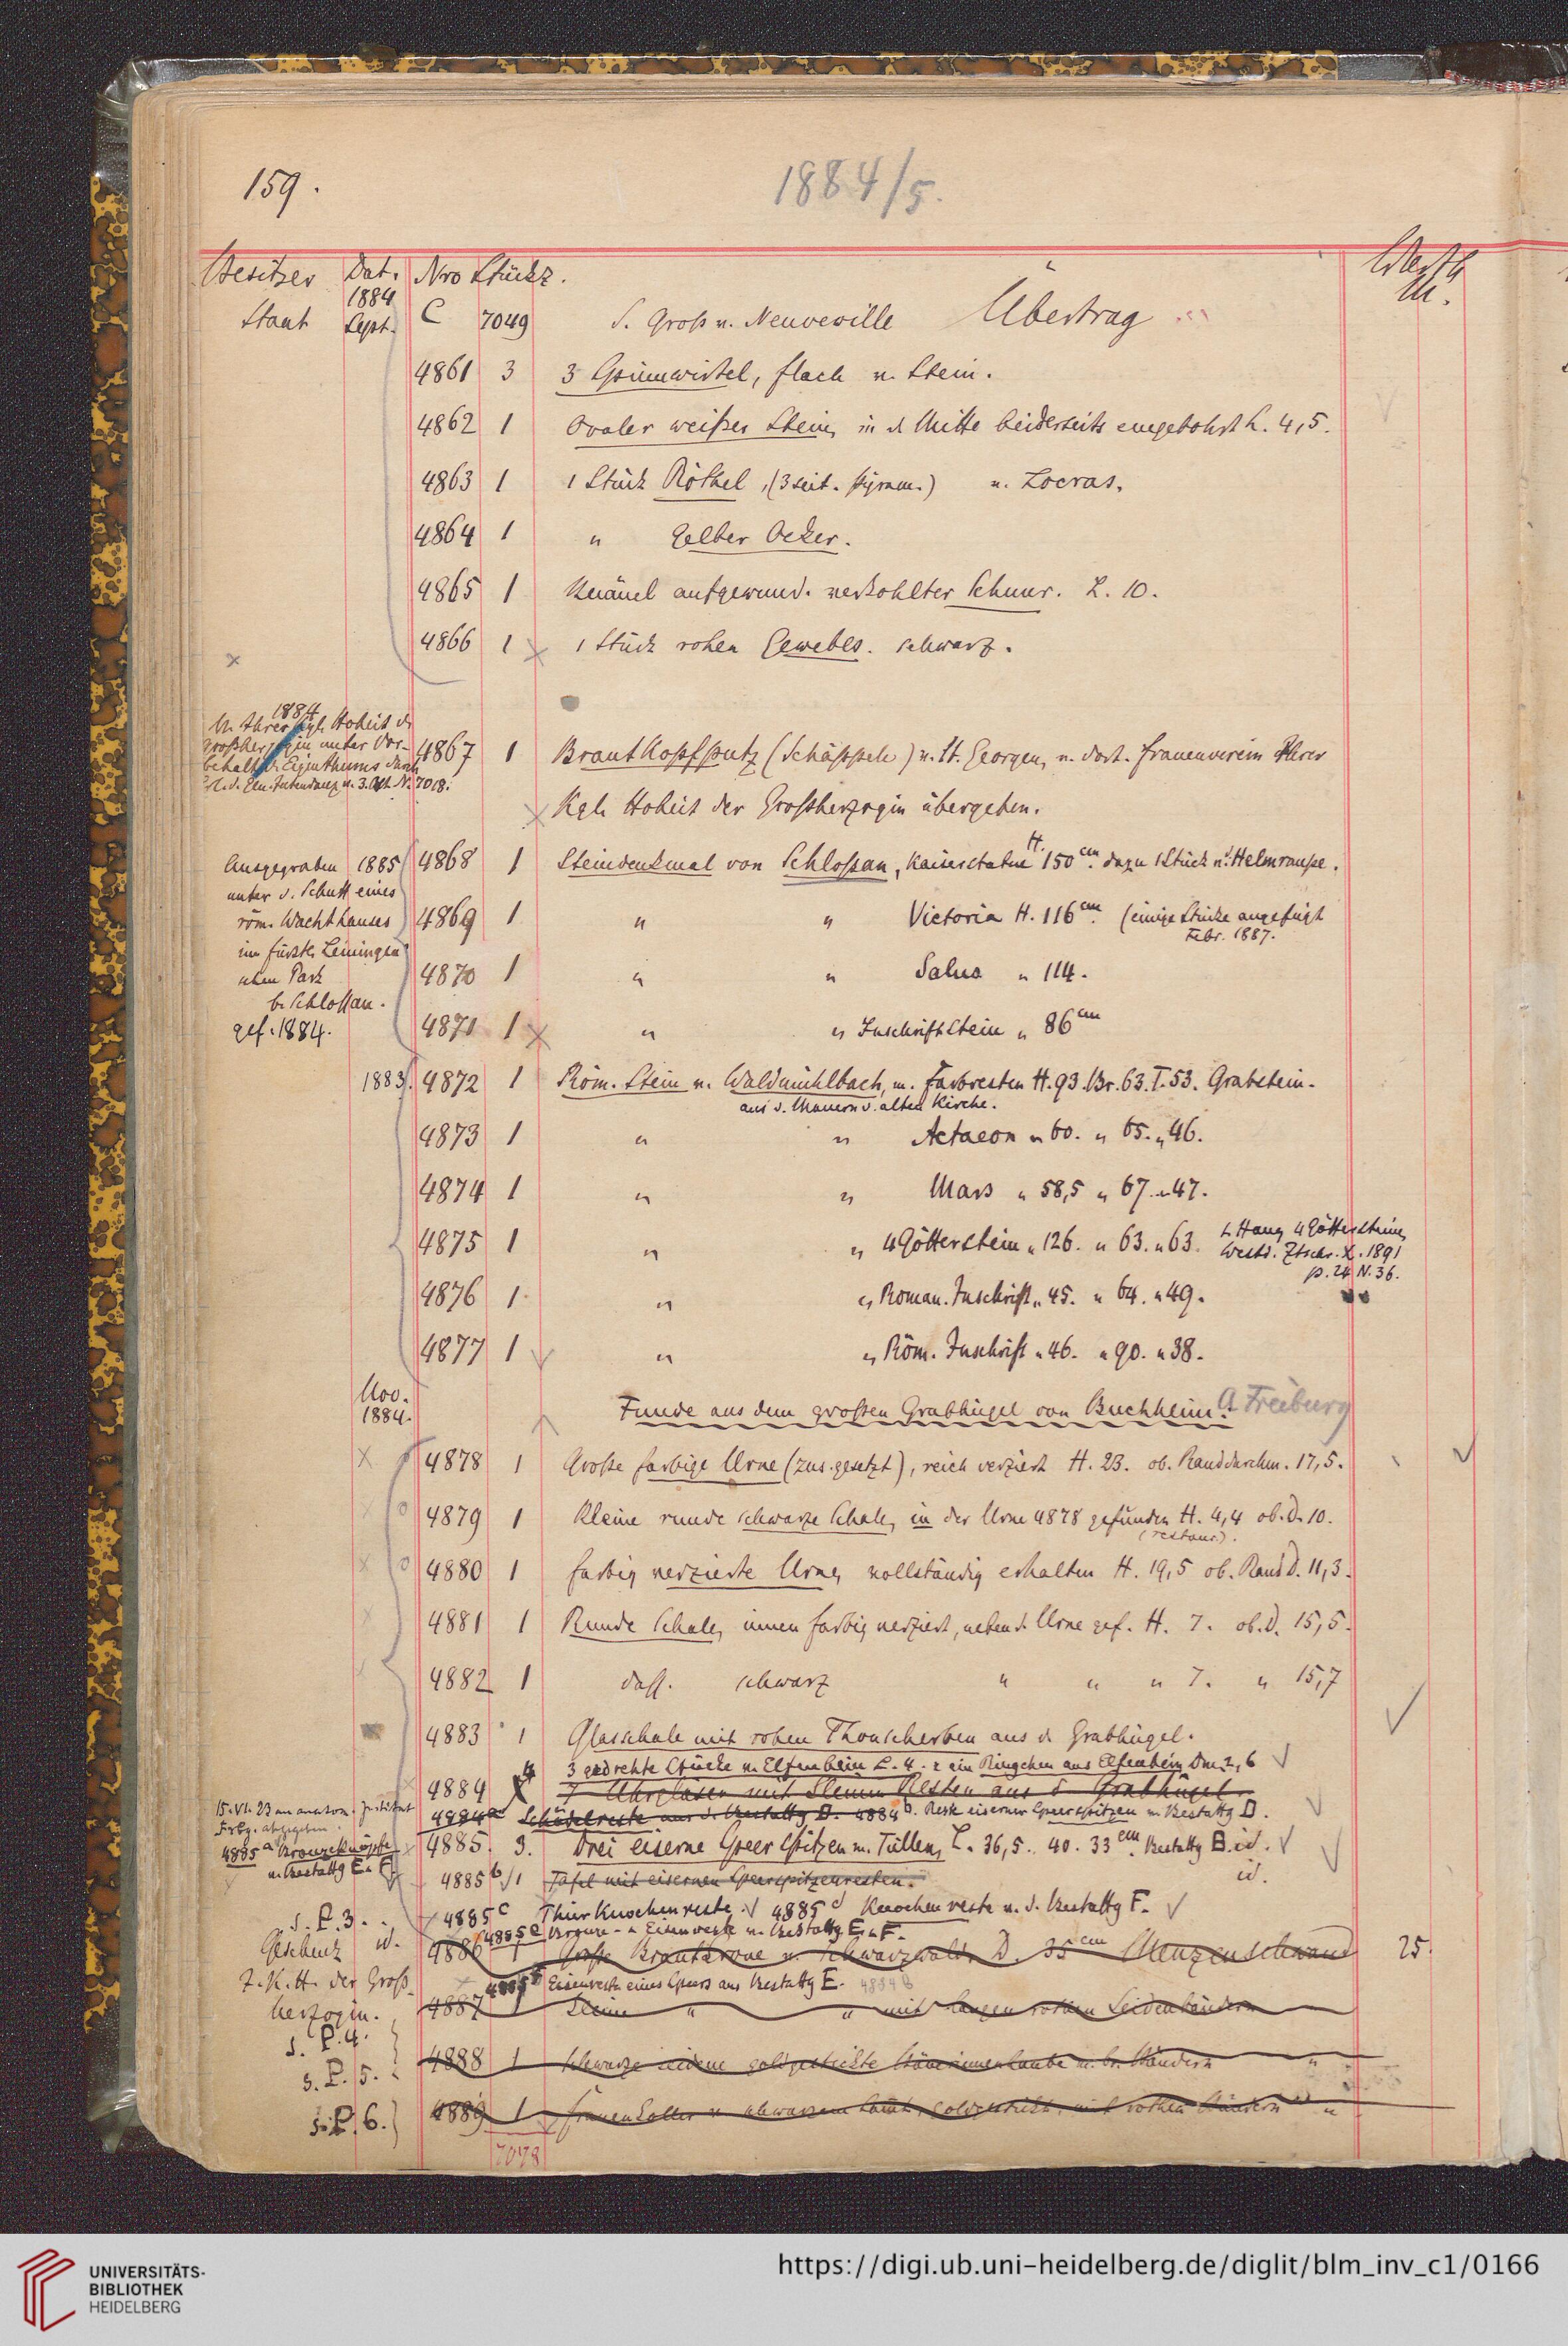 159.
1884/5.
Besitzer Dat. Nro Stückz. Werth
M.
Staat 1884 Sept. C 7049 S. Groß v. Neuveville Übertrag
4861 3 3 Spinnwirtel, flach v. Stein.
4862 1 Ovaler weißer Stein, in d. Mitte beiderseits eingebohrt L. 4,5.
4863 1 1 Stück Röthel, (3 seit. Pyram.) v. Locras.
4864 1 " Gelber Ocker.
4865 1 Knäuel aufgewund. verkohlter Schnur. L. 10.
4866 1 1 Stück rohen Gewebes. schwarz.
1884
V. Ihrer Kgl. Hoheit d.
Großherzogin unter Vor-
behalt d. Eigenthums durch
N. 7018.
4867 1 Brautkopfputz (Schäppele) v. St. Georgen, v. dort. Frauenverein Ihrer
Kgl. Hoheit der Großherzogin übergeben.
Ausgegraben 1885
unter d. Schutt eines
röm. Wachthauses
im fürstl. Leiningen
schen Park
b. Schloßau.
gef. 1884.
4868 1 Steindenkmal von Schloßau, Kaiserstatue H. 150 cm. dazu 1 Stück v. Helmraupe.
4869 1 " " Victoria H. 116 cm. (einige Stücke angefügt
Febr. 1887.
4870 1 " " Salus " 114.
4871 1 " " Inschriftstein " 86 cm
1883. 4872 1 Röm. Stein v. Waldmühlbach, m. Farbresten H. 93. Br. 63. T. 53. Grabstein.
aus d. Mauern d. alten Kirche.
4873 1 " " Actaeon " 60. " 65. " 46.
4874 1 " " Mars " 58,5 " 67. " 47.
4875 1 " " 4 Götterstein " 126. " 63. " 63. s. Haug 4 Göttersteine,
Westd. Ztschr. X. 1891
p. 24 N. 36.
4876 1 " " Roman. Inschrift " 45. " 64. " 49.
4877 1 " " Röm. Inschrift " 46. " 90. " 38.
Nov.
1884.
Funde aus dem großen Grabhügel von Buchheim. A. Freiburg
4878 1 Große farbige Urne (zus. gesetzt), reich verziert H. 23. ob. Randdurchm. 17,5.
4879 1 Kleine runde schwarze Schale, in der Urne 4878 gefunden H. 4,4 ob. D. 10.
(restaur.).
4880 1 farbig verzierte Urne, vollständig erhalten H. 19,5 ob. Rand D. 11,3.
4881 1 Runde Schale, innen farbig verziert, neben d. Urne gef. H. 7. ob. D. 15,5.
4882 1 dass. schwarz " " " 7. " 15,7
4883 1 Glasschale mit rohen Thonscherben aus d. Grabhügel.
4 3 gedrehte Stücke v. Elfenbein L. 4. 2 ein Ringchen aus Elfenbein Dm. 2,6
4884 7 Uhrgläser mit kleinen Resten aus d. Grabhügel.
15. VI. 23 an anatom. Institut
Frbg. abgegeben.
4884a Schädelreste aus d. Bestattg D. 4884 b. Reste eiserner Speerspitzen v. Bestattg D.
4885 a Bronzeknöpfe
v. Bestattg E u F
4885. 3. Drei eiserne Speerspitzen m. Tüllen, L. 36,5. 40. 33 cm. Bestattg B. id.
4885 b 1 Tafel mit eisernen Speerspitzenresten. id.
4885 c Thierknochenreste. 4885 d Knochenreste v. d. Bestattg F.
4885 e Bronze- u Eisenreste v. Bestattg E u F.
s. P. 3.
Geschenk id.
I. K. H. der Groß-
herzogin.
4886 1 Große Brautkrone v. Schwarzwald, D. 35 cm Menzenschwand 25.
Eisenreste eines Speers aus Bestattg E. 4884 b
4887 1 Kleine " " mit langen rothen Seidenbändern
s. P. 4.
s. P. 5.
4888 1 schwarze seidene goldgestickte Bäuerinnenhaube m. br. Bändern "
s. P. 6.
4889 1 Frauenkoller v. schwarzem Samt, goldgestickt, mit rothen Bändern "
7078
UNIVERSITÄTS-
BIBLIOTHEK
HEIDELBERG
https://digi.ub.uni-heidelberg.de/diglit/blm_inv_c1/0166